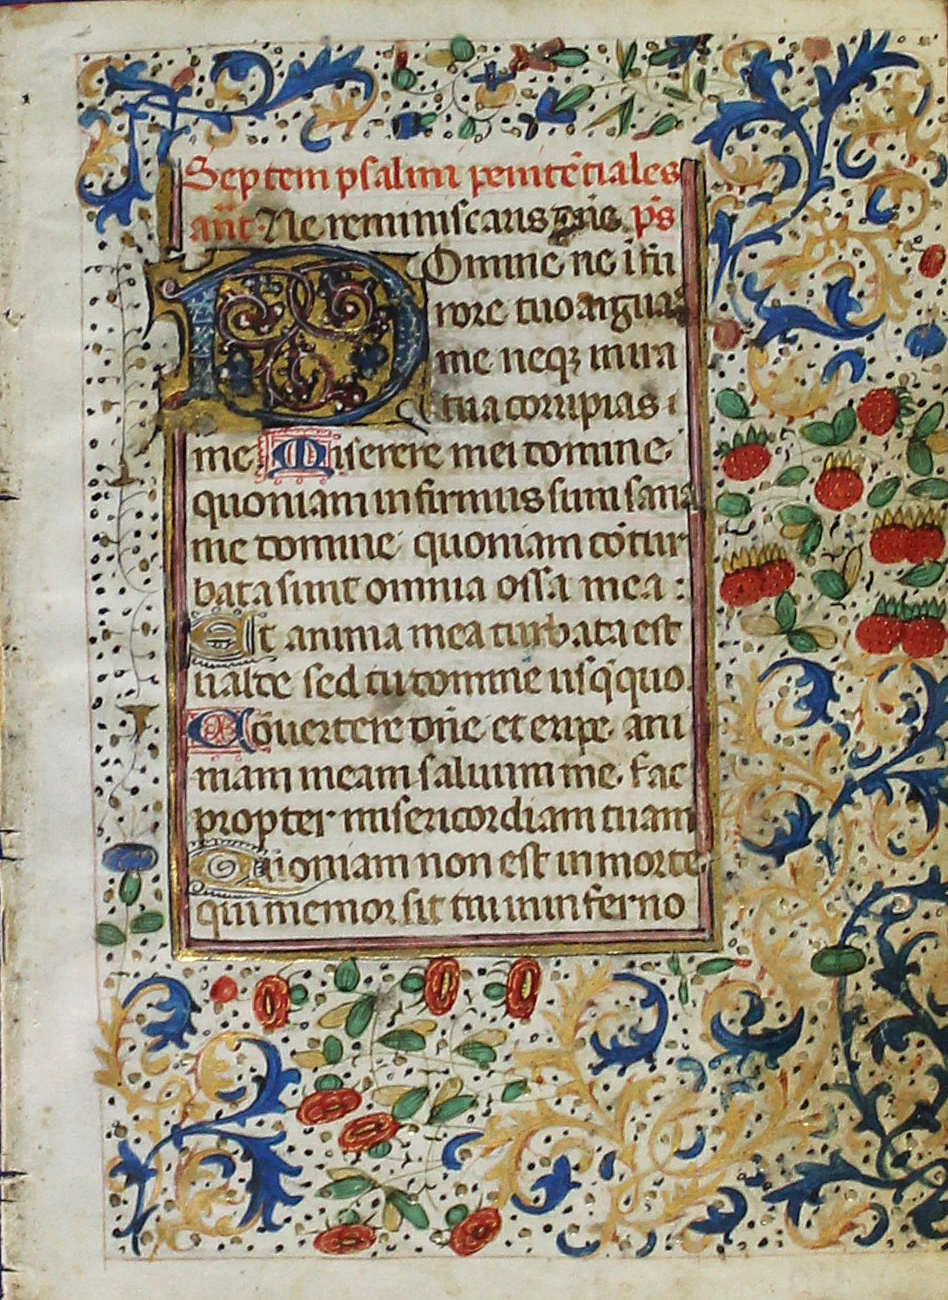 Septem psalmi penitẽtiales
añt Ne reminiscaris dñe. ps̃
Domine ne i fu
rore tuo arguas
me neqꝫ in ira
tua corripias
me. Miserere mei domine
quoniam infirmus sum sana
me domine quoniam cõtur
bata sunt omnia ossa mea :
Et anima mea turbata est
ualde sed tu domine usq̃quo
Cõuertere dñe et eripe ani
mam meam saluum me fac
propter misericordiam tuam
Quoniam non est in morte
qui memor sit tui in inferno